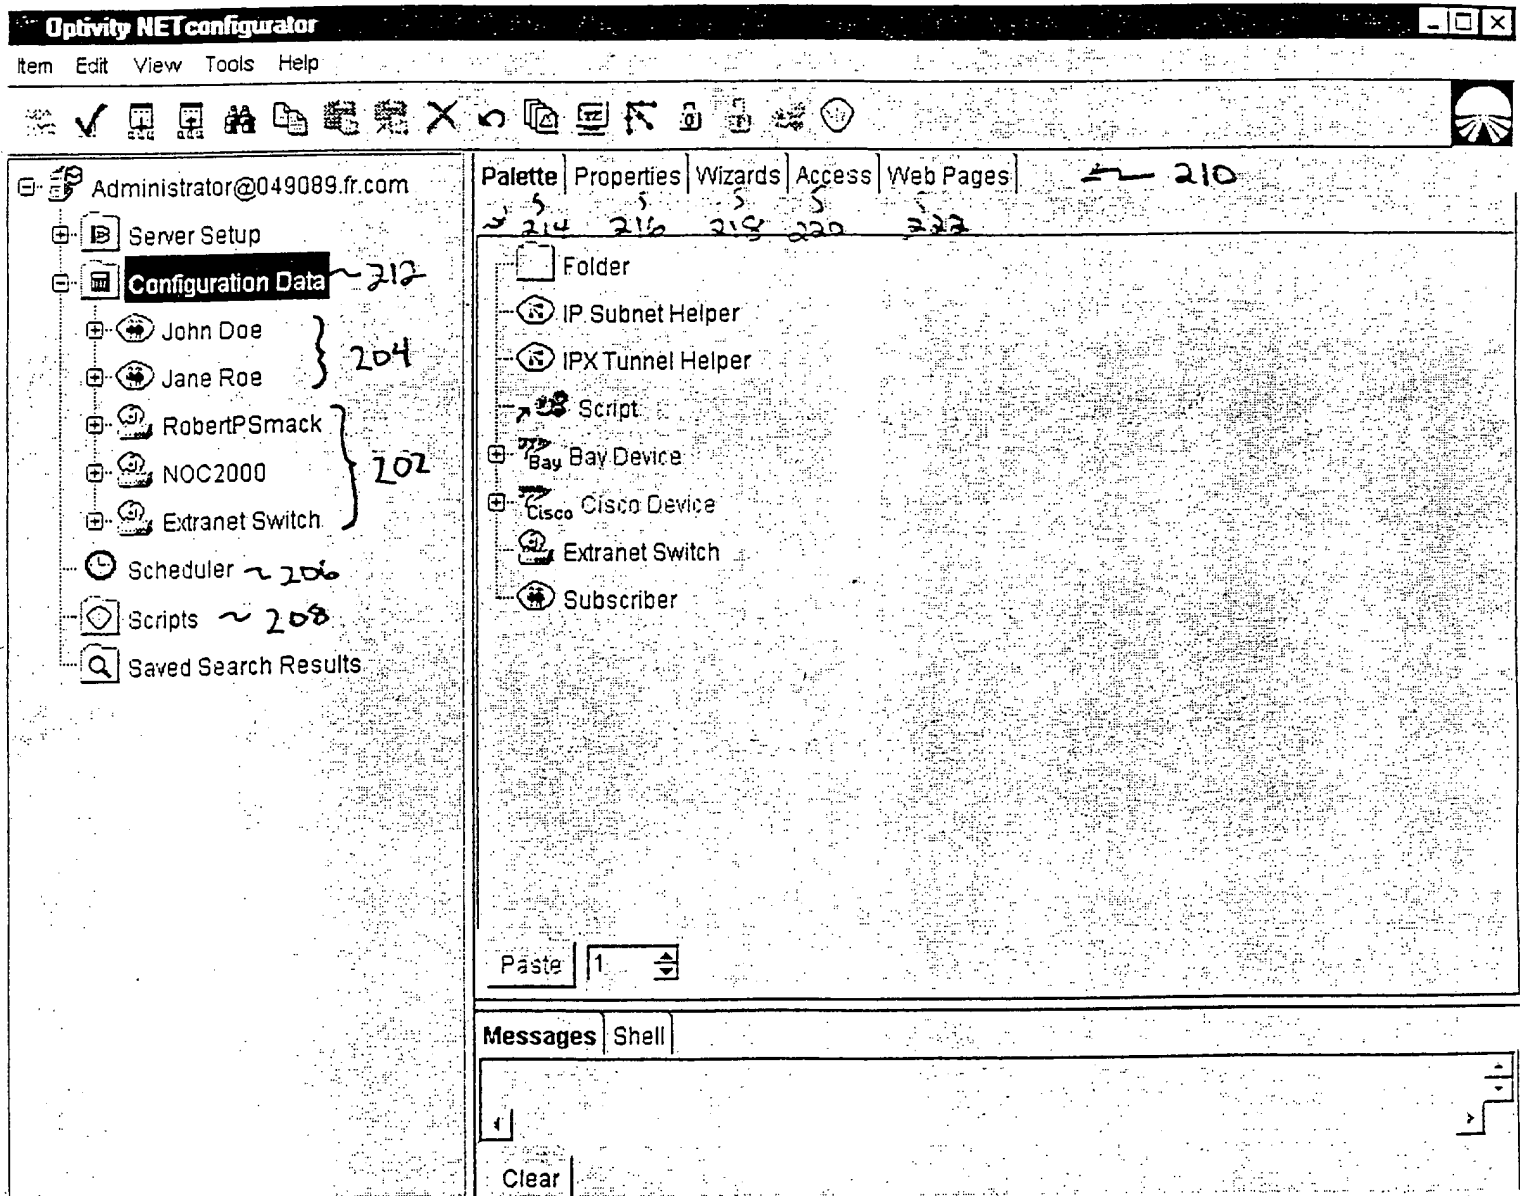 Optivity NETconfigurator
Item Edit View Tools Help
Administrator@049089.fr.com
Server Setup
Configuration Data ~ 212
John Doe
Jane Roe
204
RobertPSmack
NOC2000
Extranet Switch
202
Scheduler ~ 206
Scripts ~ 208
Saved Search Results
Palette Properties Wizards Access Web Pages 210
214 216 218 220 222
Folder
IP Subnet Helper
IPX Tunnel Helper
Script
Bay Bay Device
Cisco Cisco Device
Extranet Switch
Subscriber
Paste 1
Messages Shell
Clear